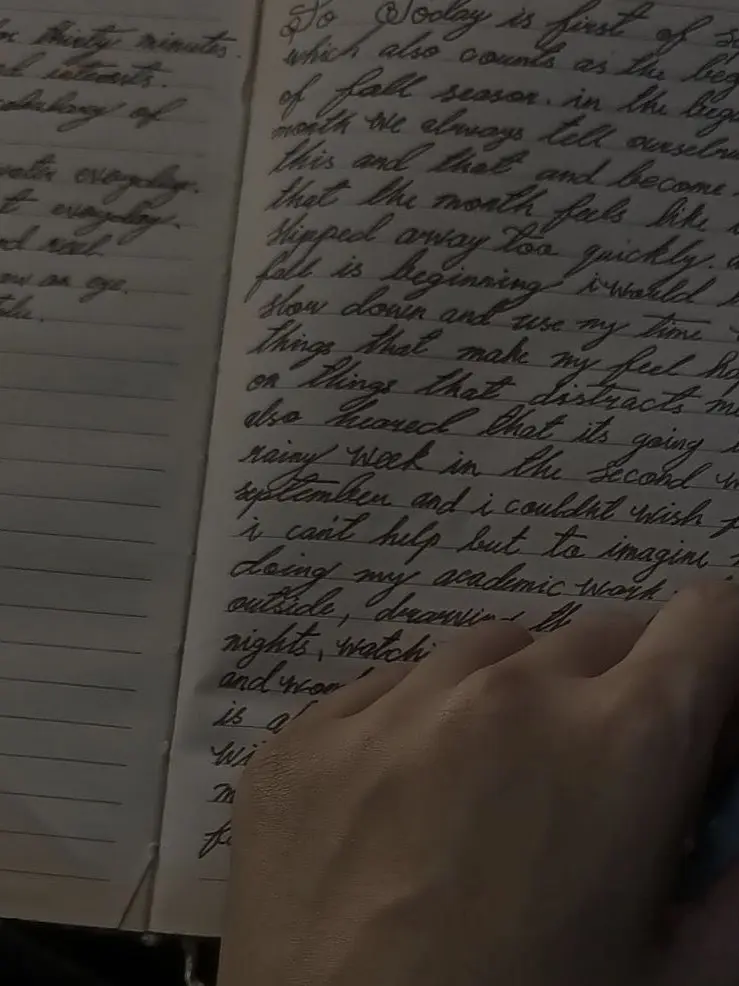 thirty minutes.
interests.
of
everyday.
everyday.
and read
an eye.
So Today is first of
which also counts as the beg
of fall season. in the begi
month we always tell ourselv
this and that and become
that the month feels like
slipped away too quickly.
fall is beginning i would
slow down and use my time
things that make my feel ha
on things that distracts me
also heared that its going
rainy week in the second w
september and i couldnt wish f
i can't help but to imagine
doing my academic work
outside, drawing th
nights, watchi
and won
is a
wi
m
fu